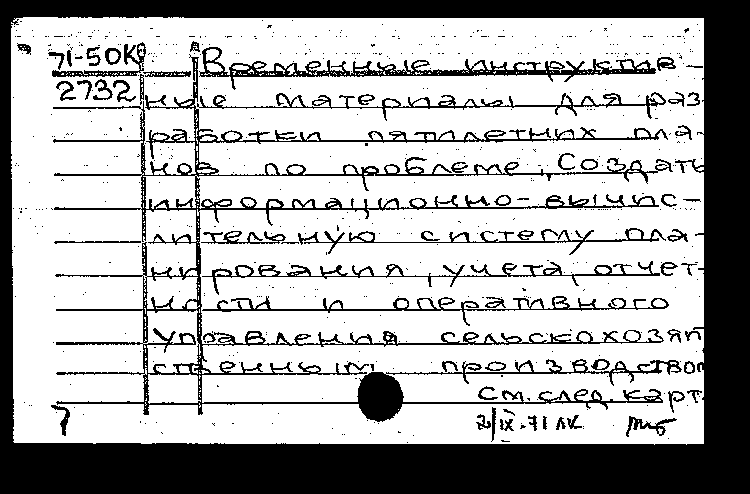 71-50К Временные инструктив-
2732 ные материалы для раз-
работки пятилетних пла-
нов по проблеме „Создать
информационно-вычис-
лительную систему пла-
нирования, учета, отчет-
ности и оперативного
управления сельскохозяй
ственным производством
См. след. карт.
7 2/IX-71 ЛК